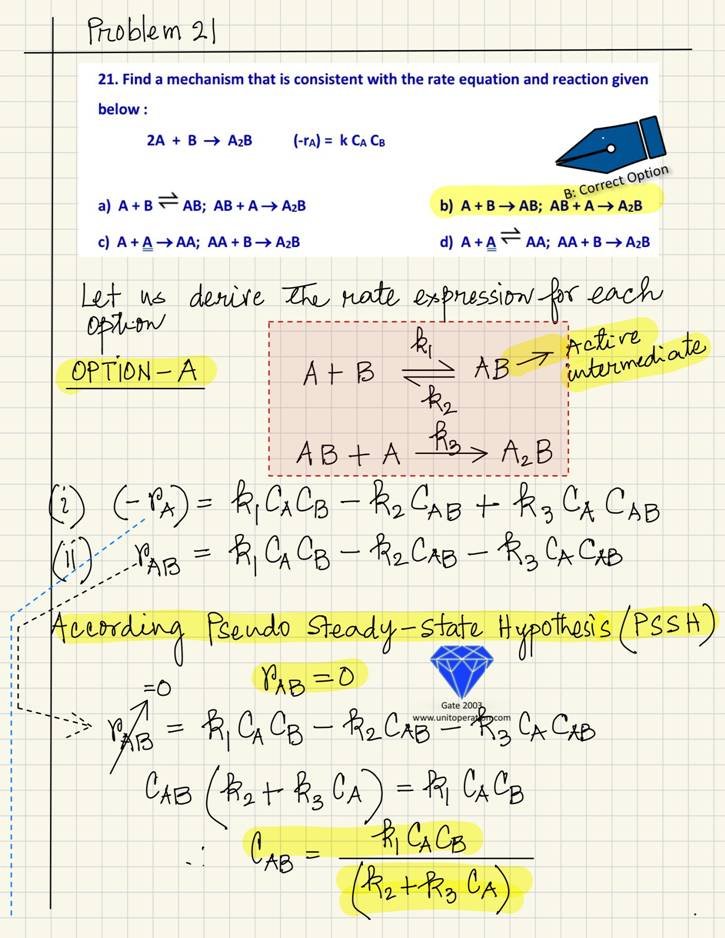 Problem 21
21. Find a mechanism that is consistent with the rate equation and reaction given
below :
2A + B → A₂B (-rA) = k CA CB
B: Correct Option
a) A + B ⇌ AB; AB + A → A₂B
b) A + B → AB; AB + A → A₂B
c) A + A → AA; AA + B → A₂B
d) A + A ⇌ AA; AA + B → A₂B
Let us derive the rate expression for each
option
OPTION-A
A + B ⇌ AB → Active
k₁
k₂
intermediate
AB + A → A₂B
k₃
(i) (-rA) = k₁CACB - k₂CAB + k₃CACAB
(ii) rAB = k₁CACB - k₂CAB - k₃CACAB
According Pseudo Steady-state Hypothesis (PSSH)
rAB = 0
Gate 2003
www.unitoperation.com
=0
rAB = k₁CACB - k₂CAB - k₃CACAB
CAB (k₂ + k₃CA) = k₁CACB
∴ CAB = k₁CACB
(k₂ + k₃CA)